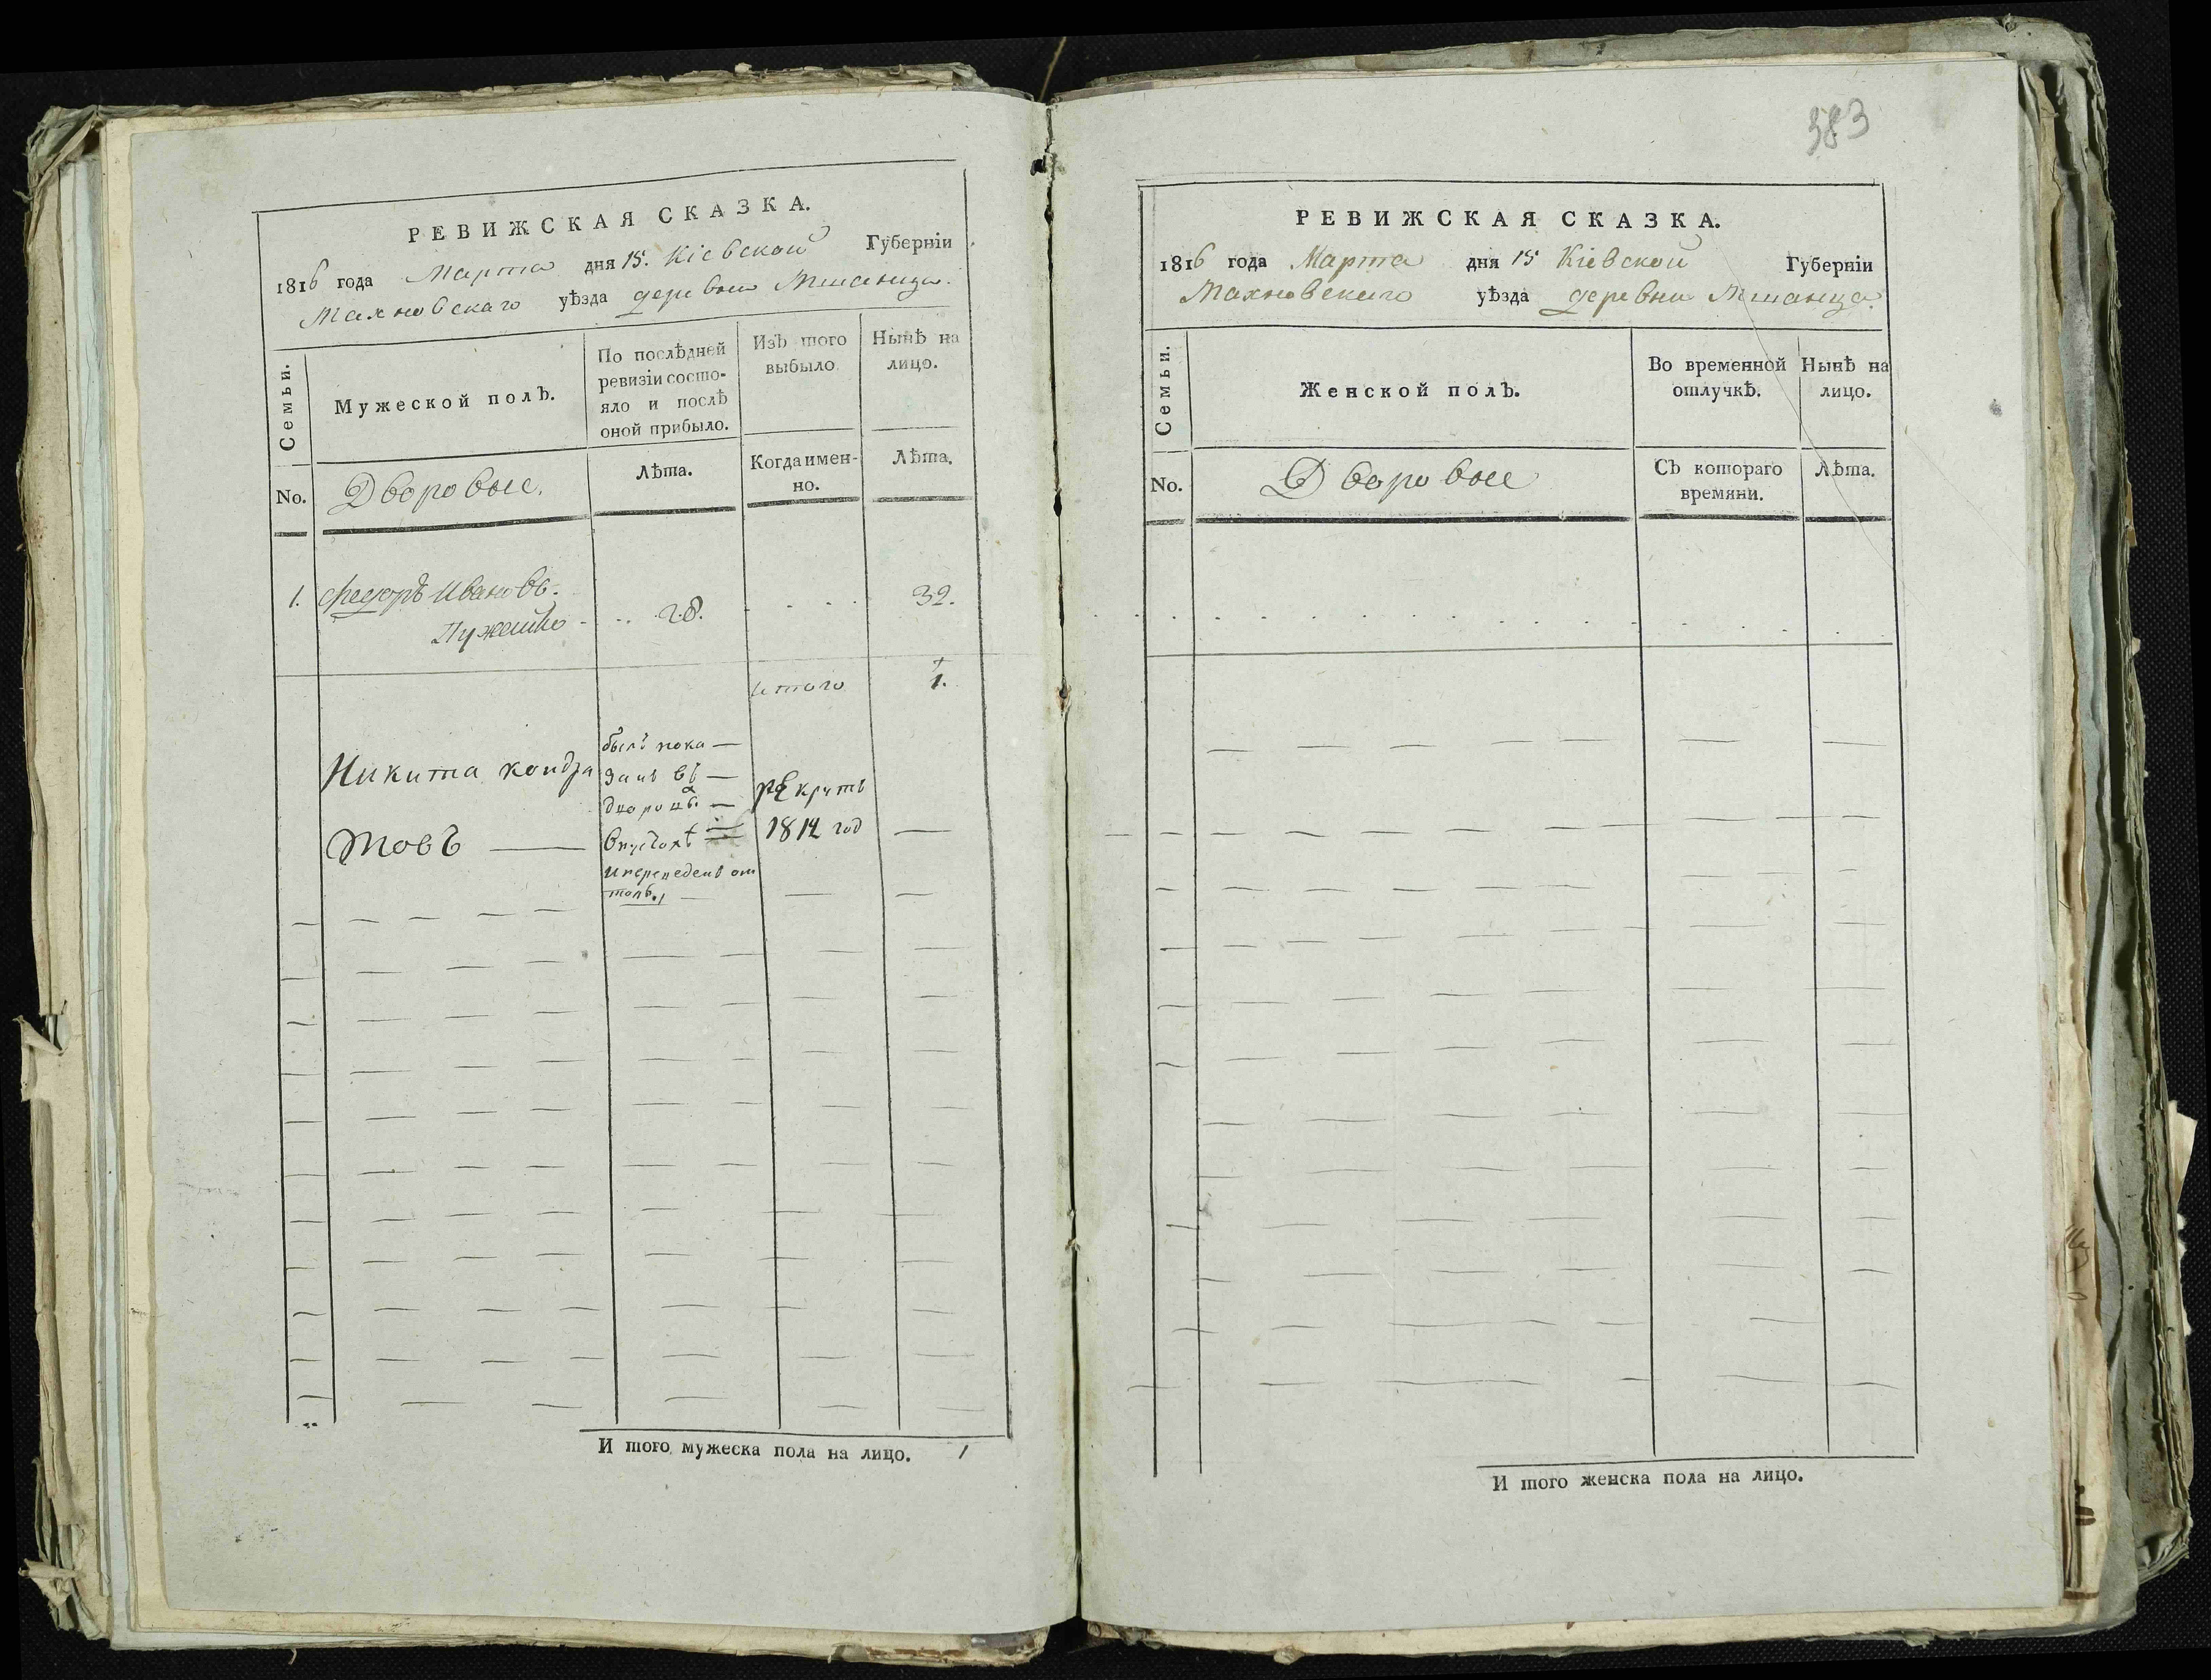 РЕВИЖСКАЯ СКАЗКА.
1816 года Марта дня 15. Кіевской Губерніи
Махновскаго уѣзда деревни Мшанца.
Семьи.
Мужеской полъ.
По послѣдней
ревизіи состо-
яло и послѣ
оной прибыло.
Изъ того
выбыло
Нынѣ на
лицо.
No.
Дворовые.
Лѣта.
Когда имен-
но.
Лѣта.
1. Федоръ Ивановъ.
28. 32.
итого 1.
Никита Кондра
товъ
былъ пока
занъ въ
рекрутъ
1812 год
И того мужеска пола на лицо. 1
583
РЕВИЖСКАЯ СКАЗКА.
1816 года Марта дня 15 Кіевской Губерніи
Махновскаго уѣзда деревни Мшанца.
Семьи.
Женской полъ.
Во временной
отлучкѣ.
Нынѣ на
лицо.
No.
Дворовые
Съ котораго
времяни.
Лѣта.
И того женска пола на лицо.